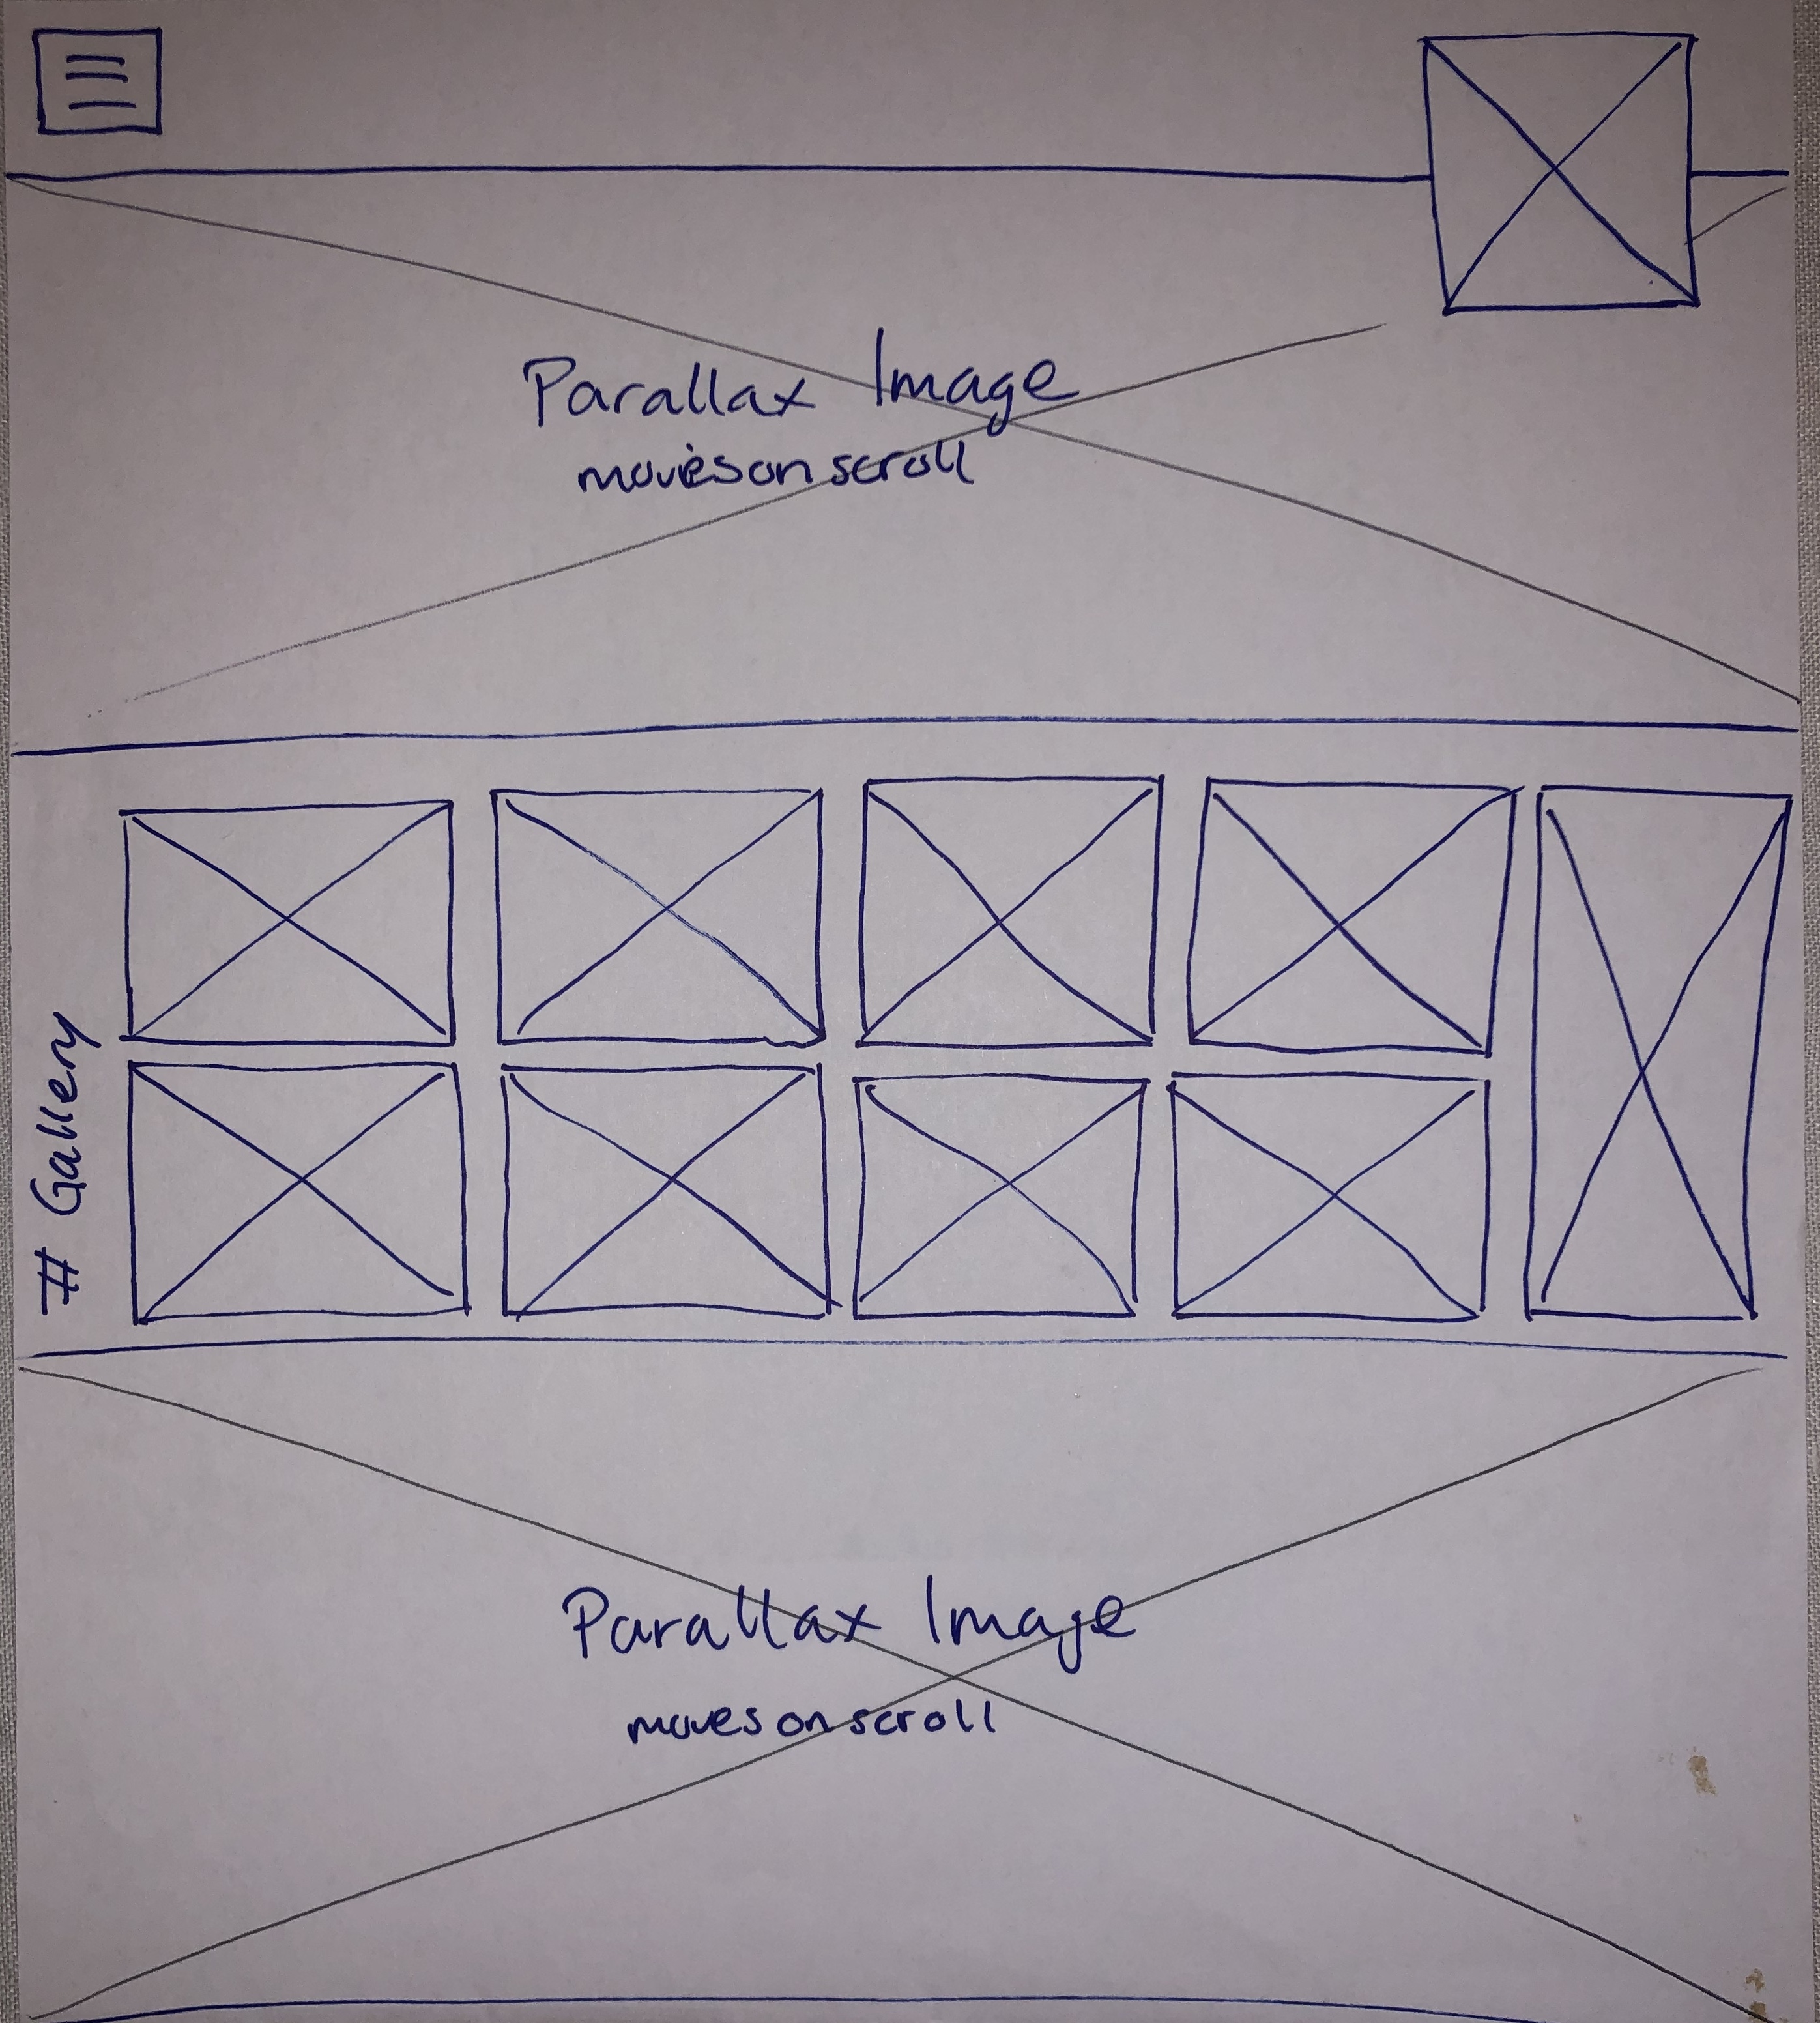 Parallax Image
moves on scroll
# Gallery
Parallax Image
moves on scroll